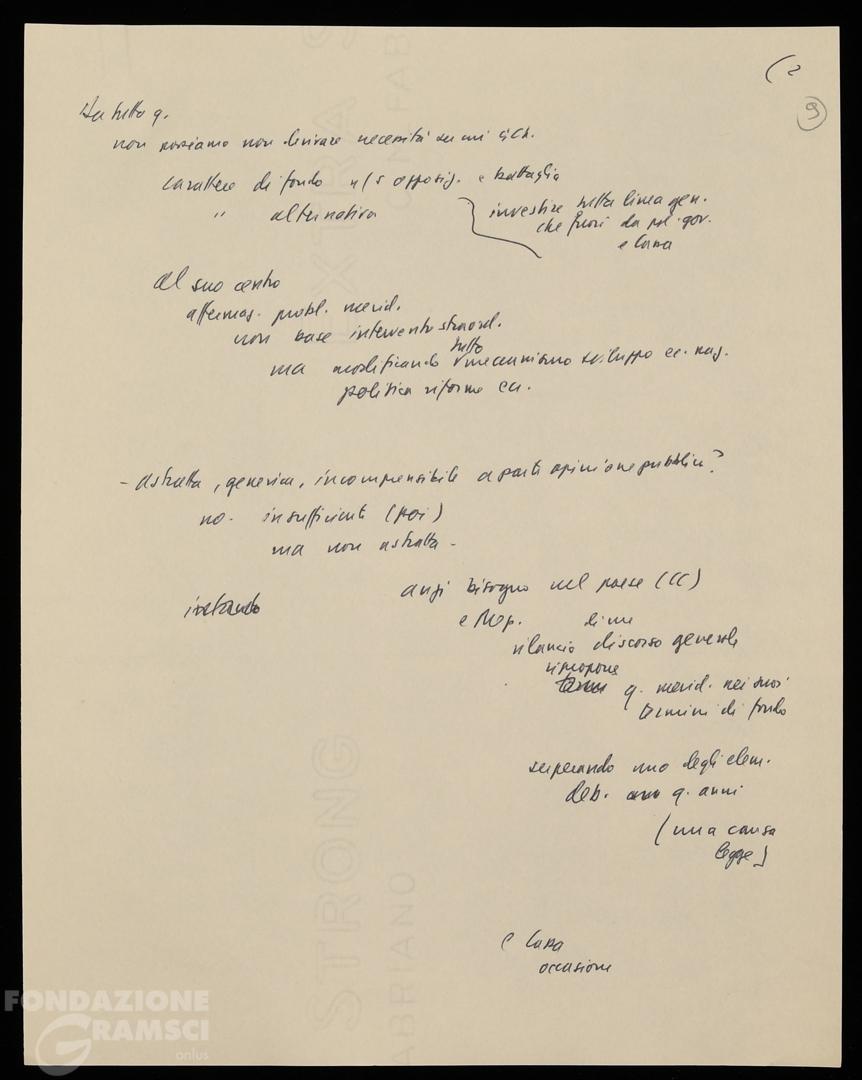 (2
9
Da tutto q.
non possiamo non derivare necessità
carattere di fondo n/s opposiz. e battaglia
" alternativa
investire tutta linea gen.
che fuori da pol. gov.
e Cassa
al suo centro
affermaz. probl. merid.
non base intervento straord.
tutto
ma modificando meccanismo sviluppo ec. naz.
politica riforme
- astratta, generica, incomprensibile a parte opinione pubblica?
no. insufficiente (poi)
ma non astratta -
anzi bisogno nel paese (CC)
e Mezz. di un
rilancio discorso generale
ripropone
q. merid. nei suoi
termini di fondo
superando uno degli elem.
deb. q. anni
(una causa
legge)
e Cassa
occasione
STRONG
FABRIANO
FONDAZIONE
GRAMSCI
onlus